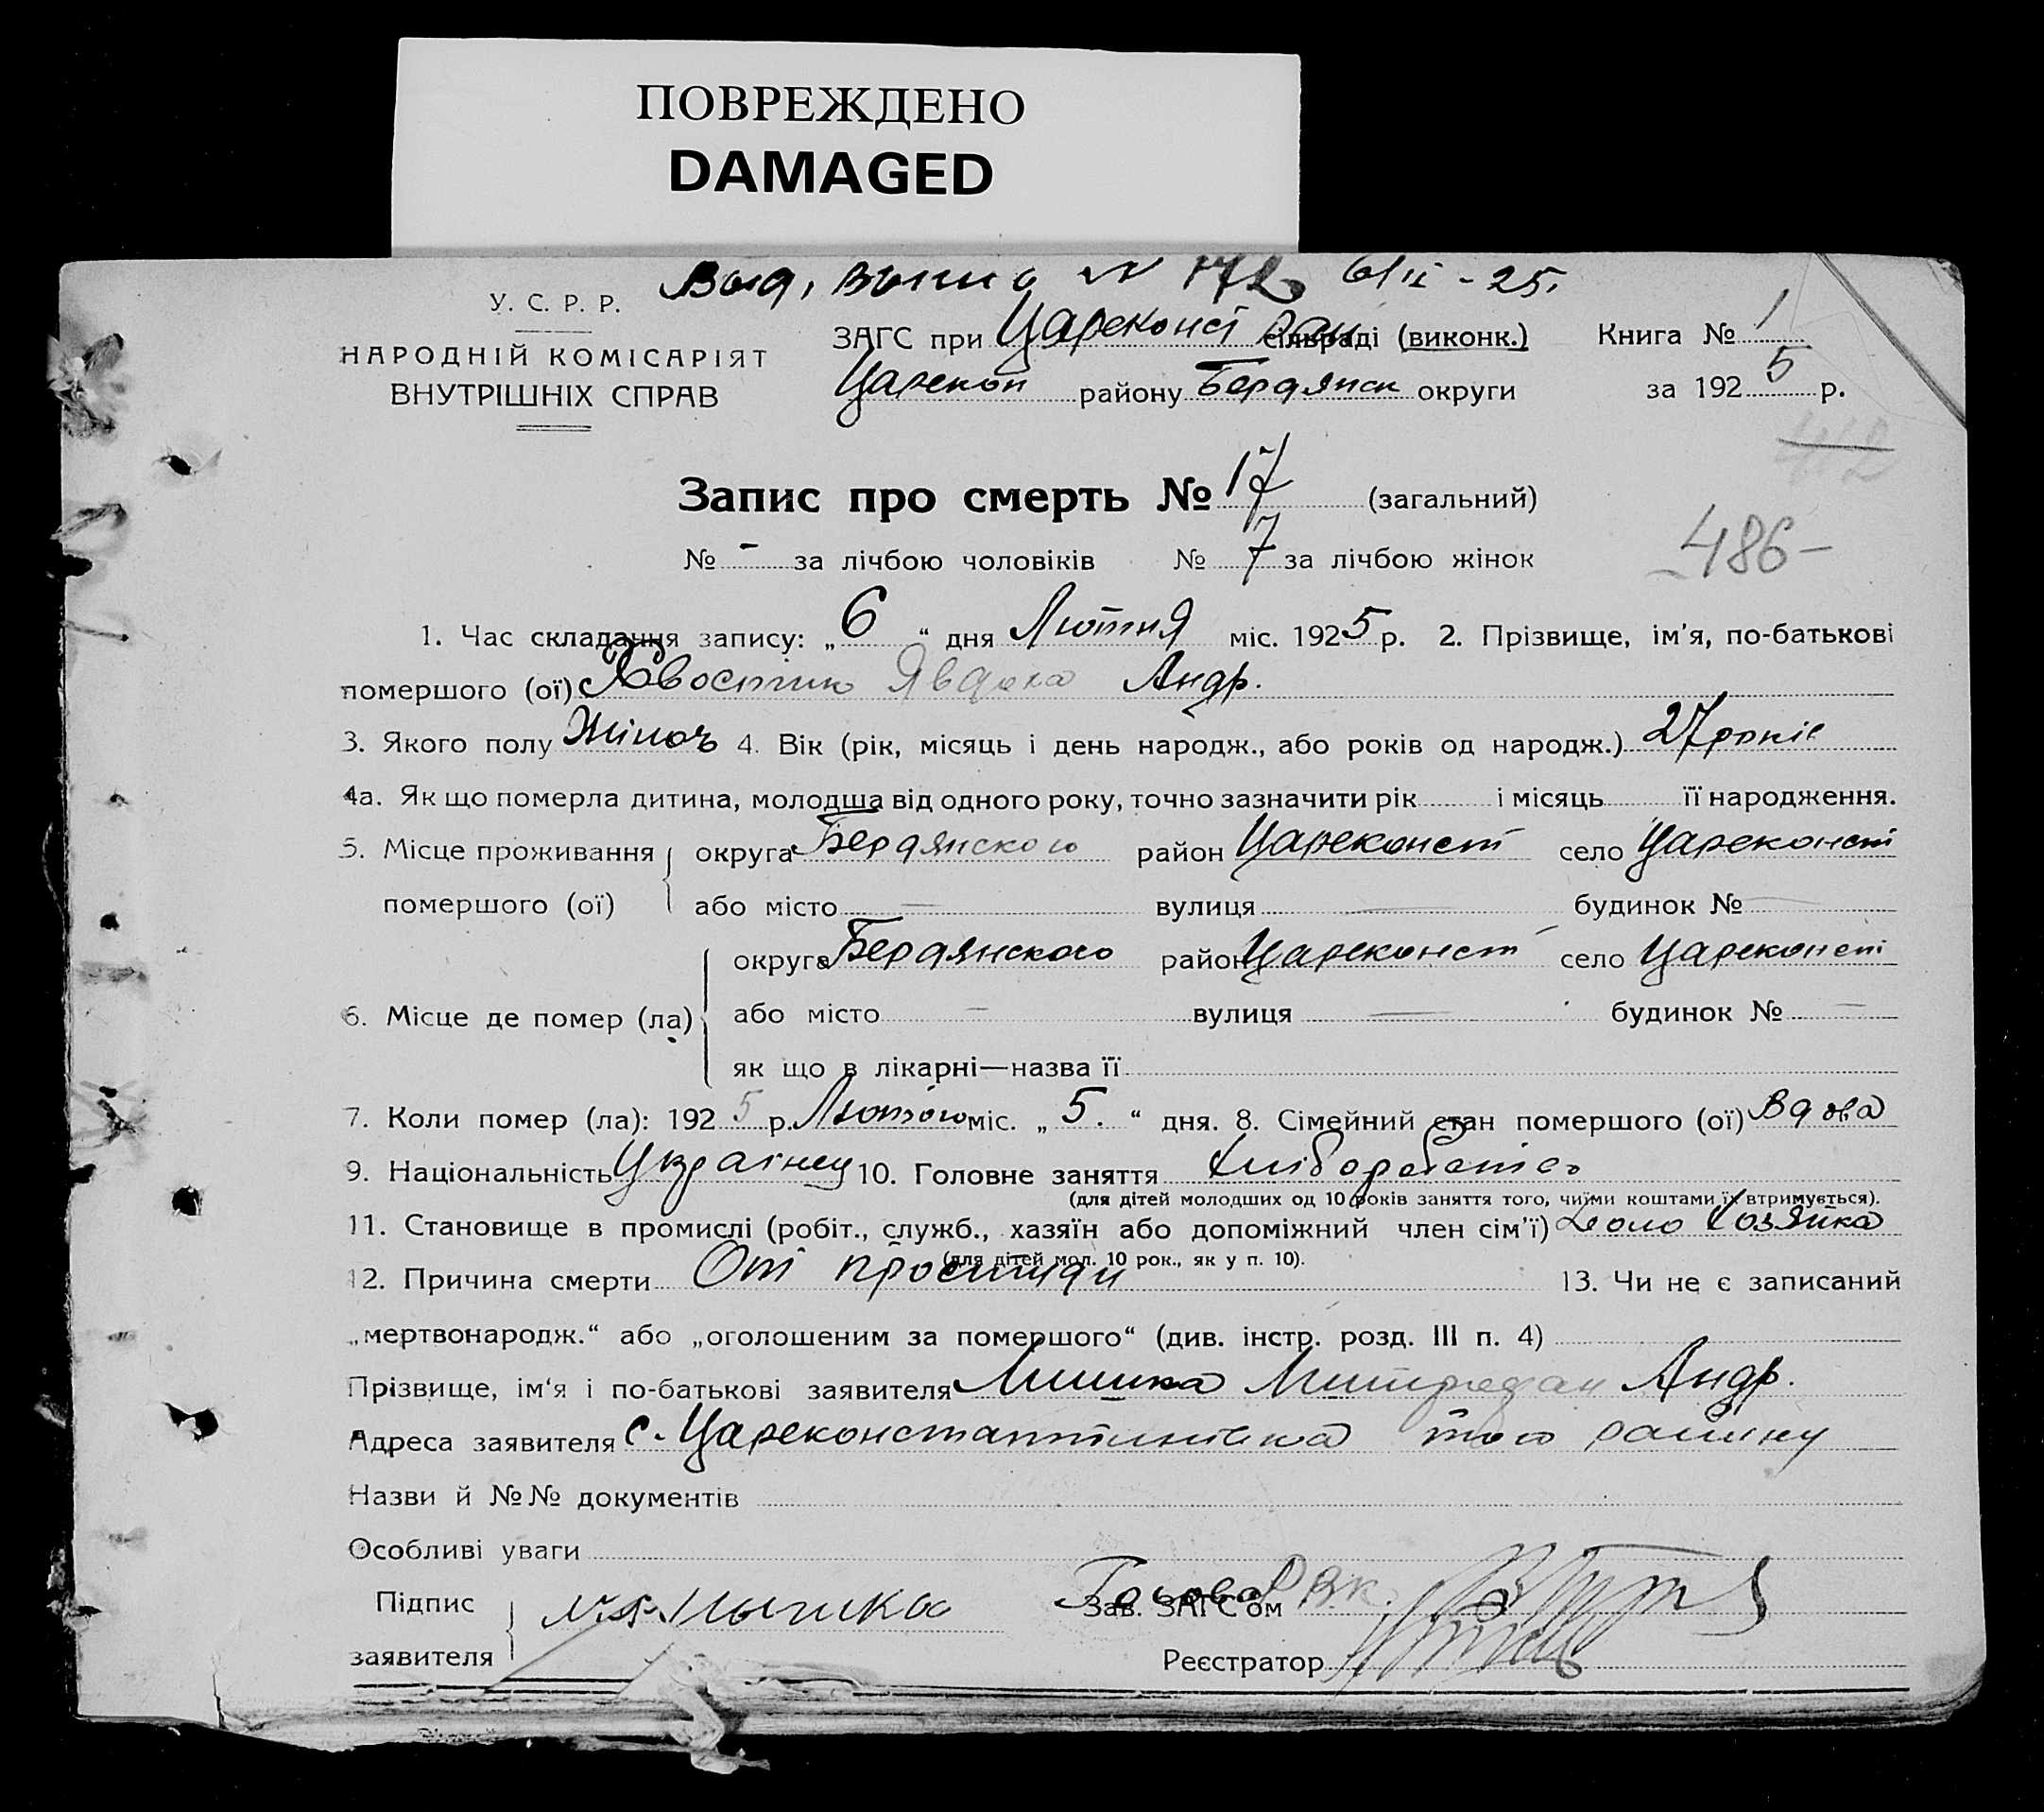 ПОВРЕЖДЕНО
DAMAGED
Выд. выпис № 172 6/II - 25.
У. С. Р. Р.
НАРОДНІЙ КОМІСАРІЯТ
ВНУТРІШНІХ СПРАВ
ЗАГС при Цареконст Рай сільраді (виконк.) Книга № 1
Царекон району Бердянск округи за 1925 р.
412
Запис про смерть № 17 (загальний)
№ - за лічбою чоловіків № 7 за лічбою жінок
486-
1. Час складання запису: „6“ дня Лютня міс. 1925 р. 2. Прізвище, ім'я, по-батькові
помершого (ої) Хвостик Явдоха Андр.
3. Якого полу Жіноч 4. Вік (рік, місяць і день народж., або років од народж.) 27 років
4а. Як що померла дитина, молодша від одного року, точно зазначити рік і місяць її народження.
5. Місце проживання округа Бердянского район Цареконст село Цареконст
помершого (ої) або місто — вулиця — будинок № —
округа Бердянского район Цареконст село Цареконст
6. Місце де помер (ла) або місто — вулиця — будинок № —
як що в лікарні—назва її
7. Коли помер (ла): 1925 р. Лютого міс. „5.“ дня. 8. Сімейний стан помершого (ої) Вдова
9. Національність Українец 10. Головне заняття Хліборобство
(для дітей молодших од 10 років заняття того, чиїми коштами їх втримується).
11. Становище в промислі (робіт., служб., хазяїн або допоміжний член сім'ї) Хозяйка
(для дітей мол. 10 рок., як у п. 10).
12. Причина смерти От простуди 13. Чи не є записаний
„мертвонародж.“ або „оголошеним за помершого“ (див. інстр. розд. III п. 4)
Прізвище, ім'я і по-батькові заявителя Лишка Митрофан Андр.
Адреса заявителя с. Цареконстантинівка того району
Назви й №№ документів
Особливі уваги
Підпис
заявителя
Голова РВК.
Зав. ЗАГС'ом
Реєстратор